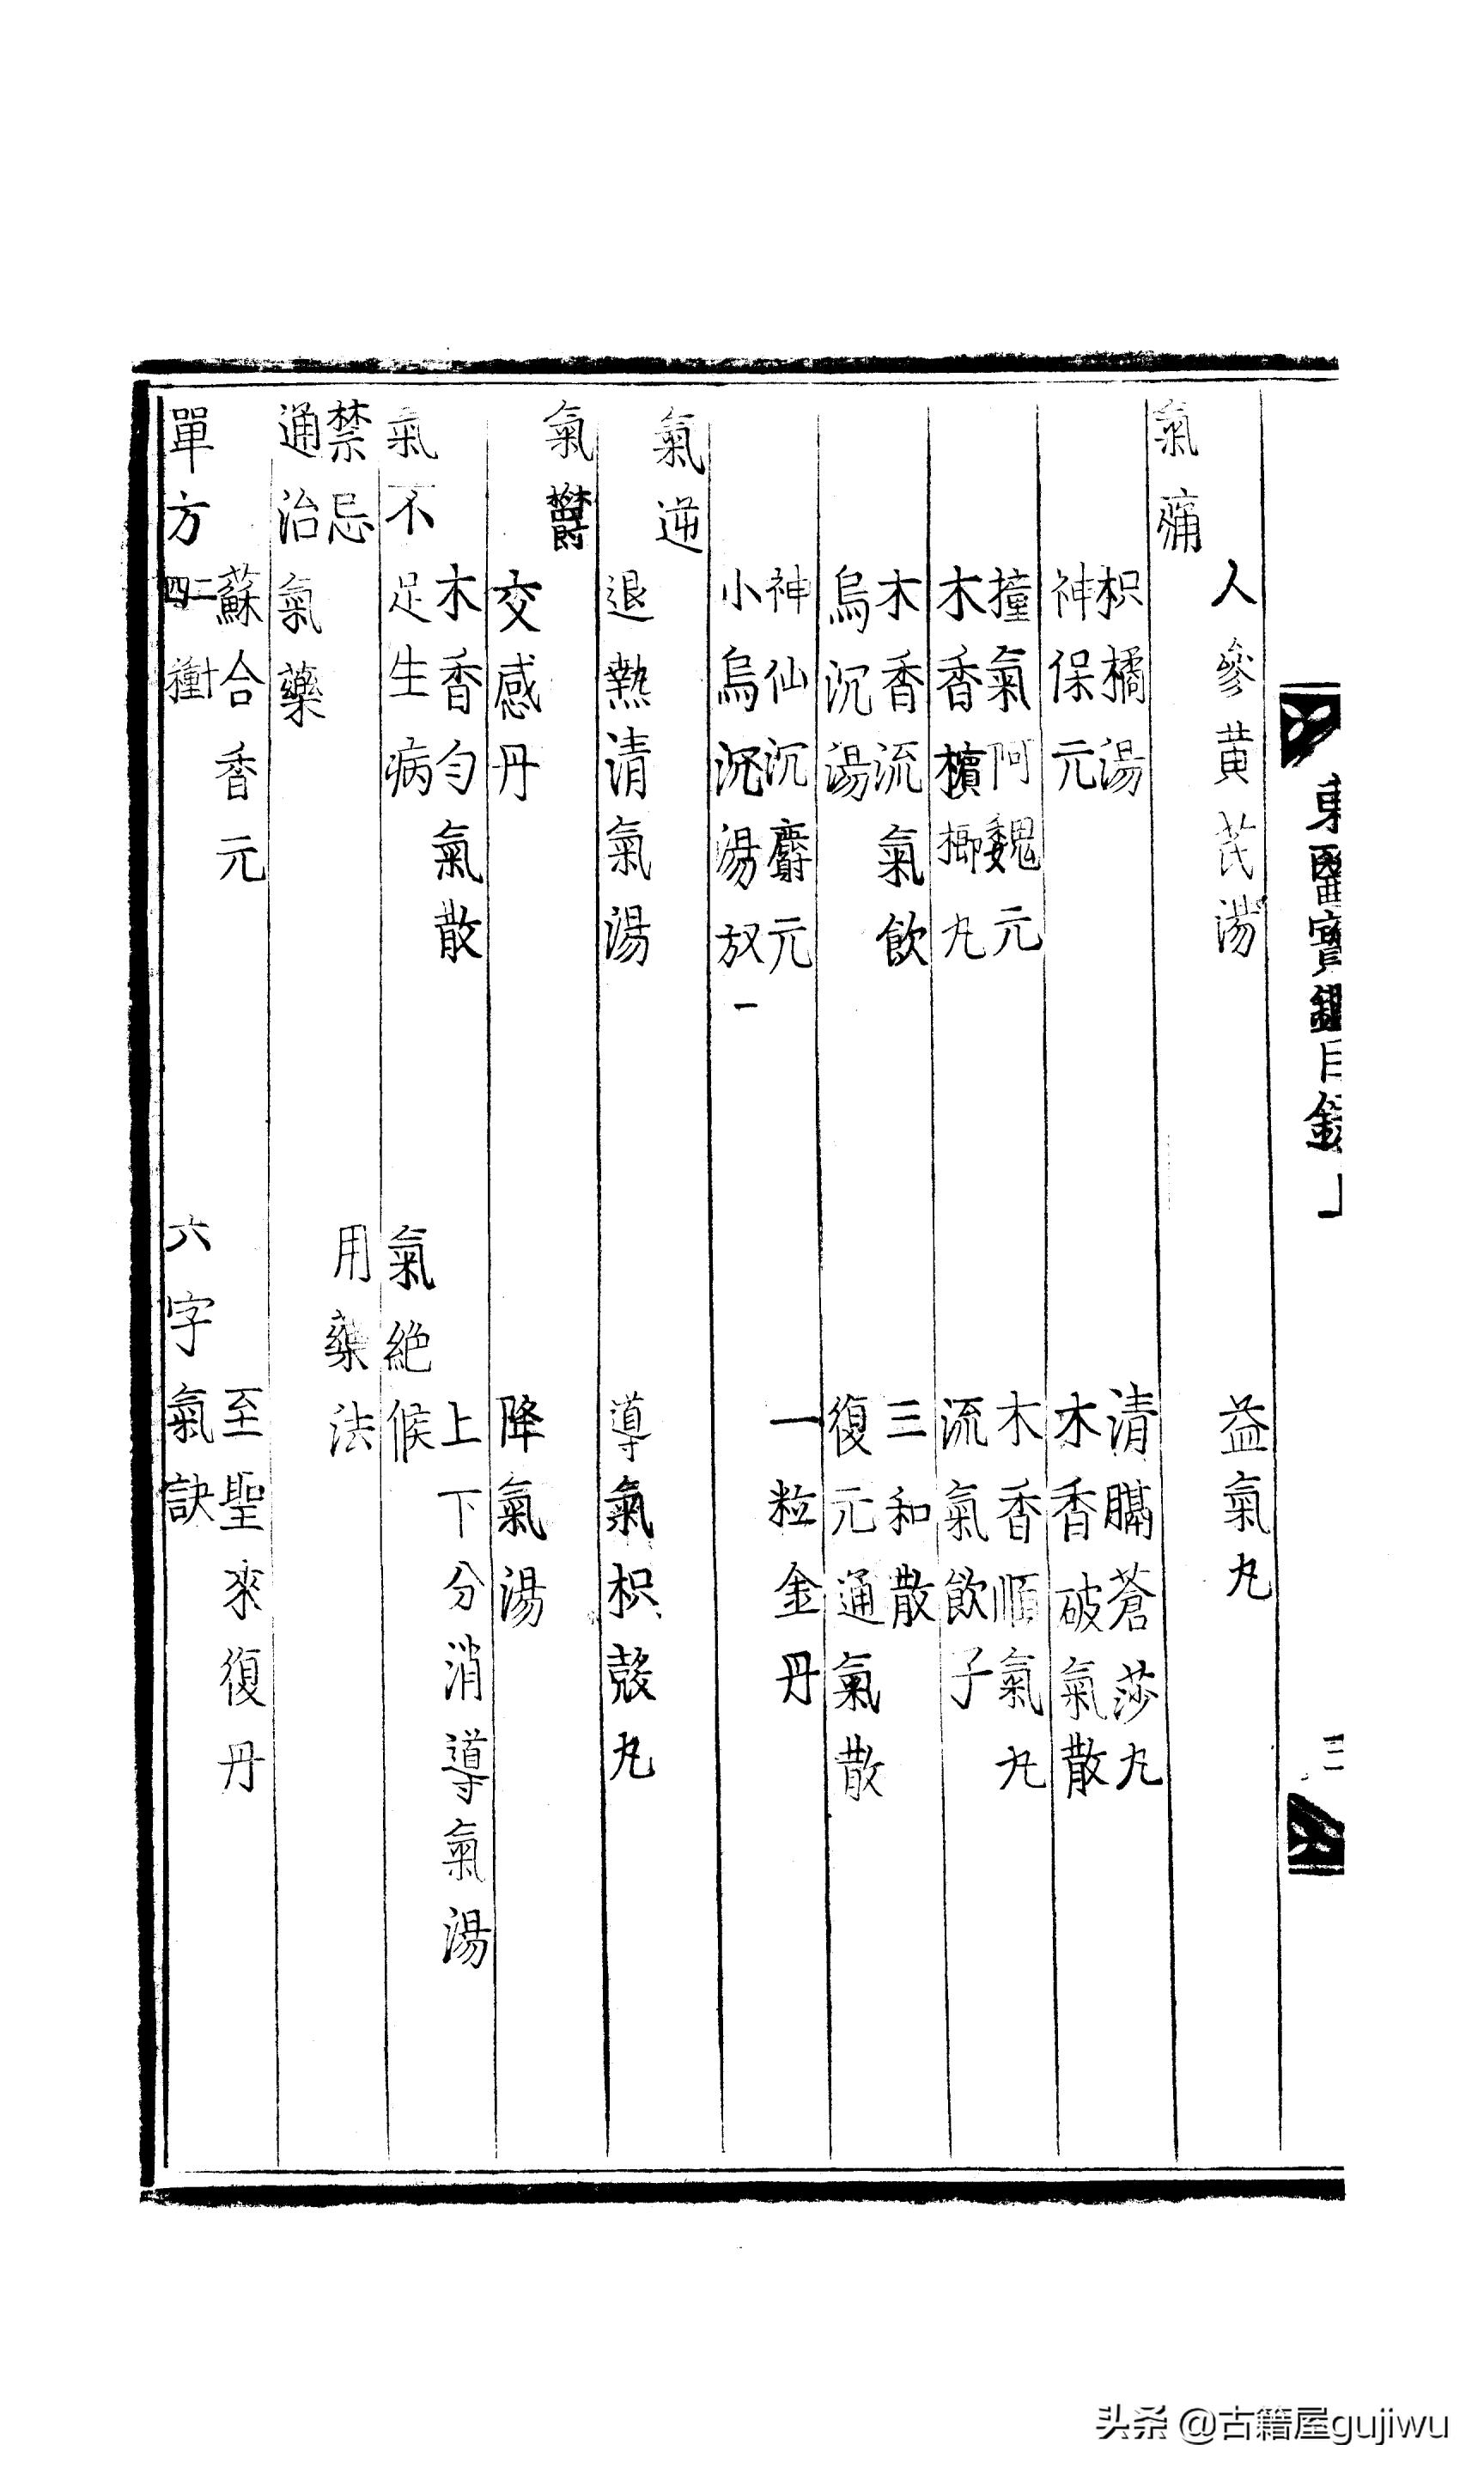 東醫寶鑑目錄上
三
人參黃芪湯　益氣丸
氣痛
枳橘湯　清膈蒼莎丸
神保元　木香破氣散
撞氣阿魏元　木香順氣丸
木香檳榔丸　流氣飲子
木香流氣飲　三和散
烏沉湯　復元通氣散
神仙沉麝元　一粒金丹
小烏沉湯
氣逆
退熱清氣湯　導氣枳殼丸
氣鬱
交感丹　降氣湯
木香勻氣散　上下分消導氣湯
氣不足生病　氣絶候
禁忌　用藥法
通治氣藥
蘇合香元　至聖來復丹
單方二十四種　六字氣訣
头条 @古籍屋gujiwu